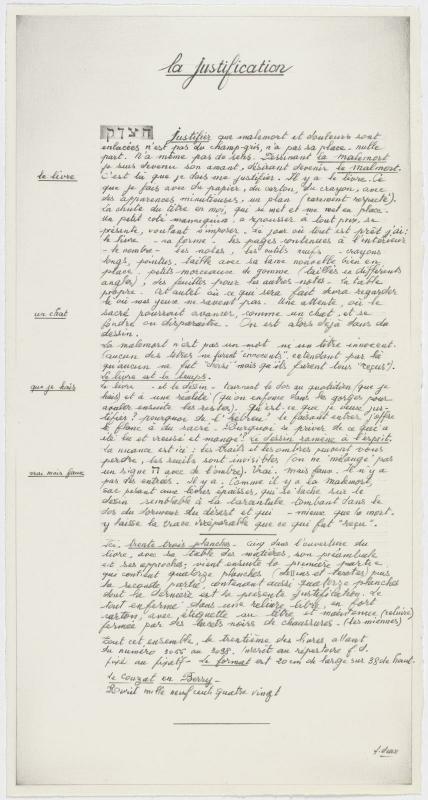 la Justification
הצדק
Justifier que malemort et douleurs sont
enlacées n'est pas du champ-gris, n'a pas sa place. nulle
part. N'a même pas de sens. Dessinant la malemort
je suis devenu son amant, désirant devenir le malmort.
le livre
C'est là que je dois me justifier. Il y a le livre. Ce
que je fais avec du papier, du carton, du crayon, avec
des apparences minutieuses, un plan (rarement respecté).
La chute du titre en moi, qui se met et me met en place.
un petit coté à repousser à tout prix, se
présente, voulant s'imposer. Le jour où tout est prêt j'ai:
le livre - sa forme - les pages contenues à l'intérieur
- le nombre - les notes, les outils neufs - crayons
longs, pointus. taille avec sa lame nouvelle bien en
place - petits morceaux de gomme (taillés en différents
angles), des feuilles pour les autres notes - la table
propre. Cet autre où ce que sera fait devra regarder
un chat
là où nos yeux ne savent pas. Une attente, où le
sacré pourrait avancer, comme un chat, et se
fondre ou disparaître. On est alors déjà dans du
dessin.
La malemort n'est pas un mot ne un titre innocent.
(aucun des titres ne furent "innocents". entendant par là
qu'aucun ne fut "choisi" mais qu'ils furent tous "reçus").
Le livre est le temps.
que je hais
le livre - et le dessin - tournent le dos au quotidien (que je
hais) et à une réalité (qu'on enfonce dans les gorges pour
avaler ensuite les restes). Qu'est-ce que je veux jus-
tifier? pourquoi de l'hébreu? le faisant entrer j'offre
le flanc à du sacré. Pourquoi se priver de ce qui a
été bu et creusé et mangé? le dessin ramène à l'esprit.
la nuance est ici: les traits et les ombres peuvent vous
perdre, les bruits sont invisibles (on ne mélange pas
vrai mais faux
un signe ח avec de l'ombre). Vrai. mais faux. Il n'y a
pas des entrées. Il y a. Comme il y a la malemort,
sac pesant aux lèvres épaisses, qui se lâche sur le
dessin semblable à la tarantule tombant dans le
dos du dormeur du désert et qui - mieux que la mort.
y laisse la trace irréparable que ce qui fut "reçu".
Ici, trente trois planches - cinq dans l'ouverture du
livre, avec sa table des matières, son préambule
et ses approches; vient ensuite la première partie
qui contient quatorze planches (dessins et textes) puis
la seconde partie contenant aussi quatorze planches
dont la dernière est la présente justification. Le
tout enfermé dans une reliure libre, en fort
carton, avec étiquette au titre et maintenance (reliure)
fermée par des lacets noirs de chaussures. (les miennes)
Tout cet ensemble, le trentième des livres allant
du numéro 3066 au 3098. Inscrit au répertoire f.d.
fixé au fixatif - Le format est 20 cm de large sur 38 de haut.
Le Couzat en Berry -
Août mille neuf cent quatre vingt
f. deux